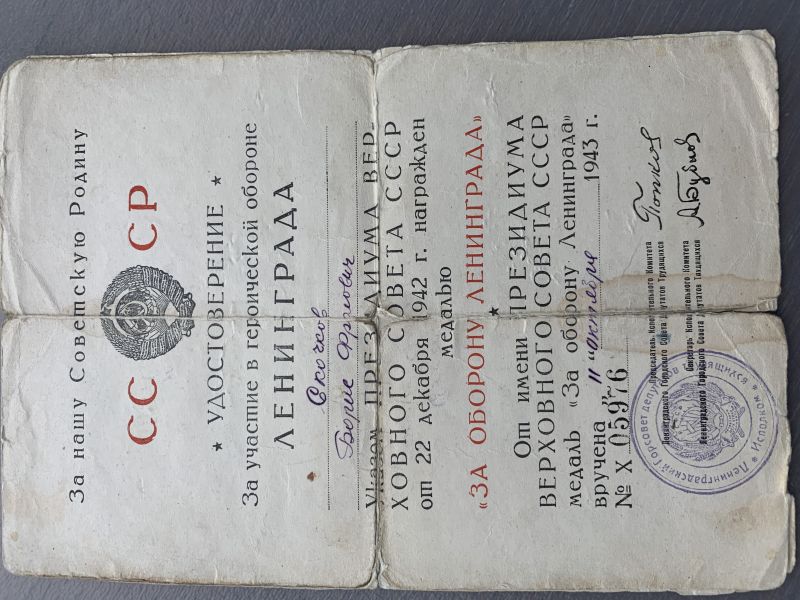 За нашу Советскую Родину
СССР
★ УДОСТОВЕРЕНИЕ ★
За участие в героической обороне
ЛЕНИНГРАДА
Скочков
Борис
Указом ПРЕЗИДИУМА ВЕР-
ХОВНОГО СОВЕТА СССР
от 22 декабря 1942 г. награжден
медалью
«ЗА ОБОРОНУ ЛЕНИНГРАДА»
★
От имени ПРЕЗИДИУМА
ВЕРХОВНОГО СОВЕТА СССР
медаль «За оборону Ленинграда»
вручена „11“ октября 1943 г.
№ Х 05976
Председатель Исполнительного Комитета
Ленинградского Городского Совета Депутатов Трудящихся
Попков
Секретарь Исполнительного Комитета
Ленинградского Городского Совета Депутатов Трудящихся
АБубнов
Ленинградский Горсовет
Исполком